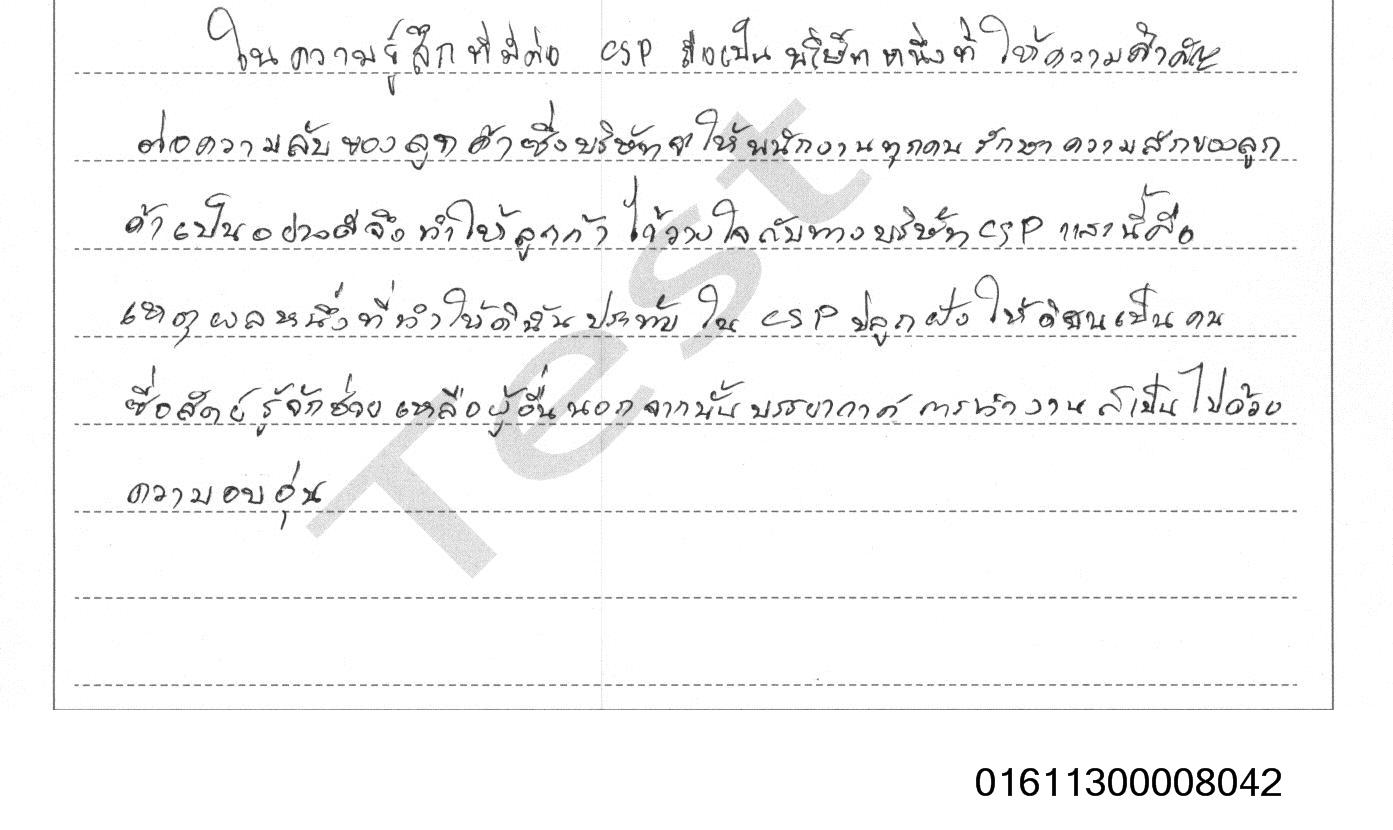 ในความรู้สึกที่มีต่อ CSP ถือเป็นบริษัทหนึ่งที่ให้ความสำคัญ
ต่อความลับของลูกค้าซึ่งบริษัทจะให้พนักงานทุกคนรักษาความลับของลูก
ค้าเป็นอย่างดีจึงทำให้ลูกค้าไว้วางใจกับทางบริษัท CSP และนี้คือ
เหตุผลหนึ่งที่ทำให้ดิฉันประทับใน CSP ปลูกฝังให้ดิฉันเป็นคน
ซื่อสัตย์รู้จักช่วยเหลือผู้อื่นนอกจากนั้นบรรยากาศการทำงานก็เป็นไปด้วย
ความอบอุ่น
Test
01611300008042